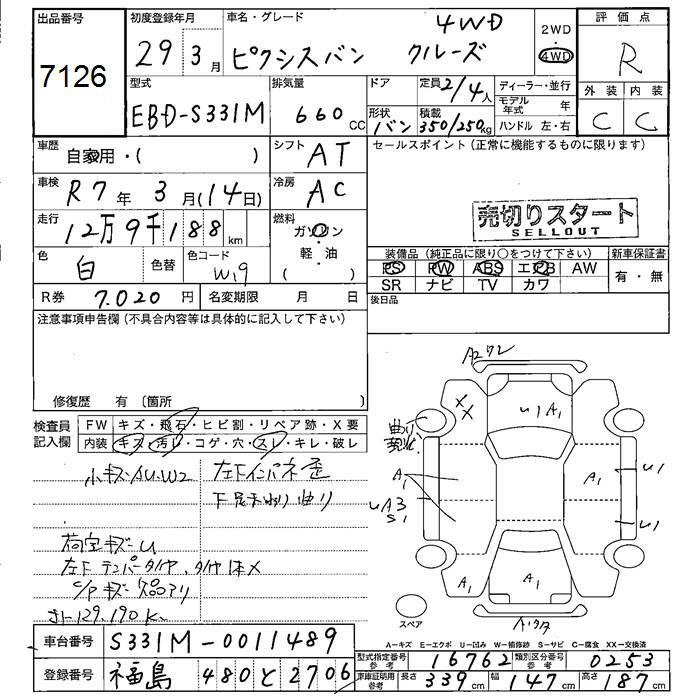 出品番号
7126
初度登録年月
29年3月
車名・グレード
ピクシスバン クルーズ 4WD
2WD
・
4WD
評価点
R
外装 内装
C C
型式
EBD-S331M
排気量
660 CC
ドア
形状
バン
定員 2/4人
積載
350/250kg
ディーラー・並行
モデル年式 年
ハンドル 左・右
車歴
自家用・( )
シフト
AT
車検
R7年 3月(14日)
冷房
AC
走行
12万9千188 km
燃料
ガソリン
軽・油
( )
色
白
色替
色コード
W19
R券 7,020円
名変期限 月 日
セールスポイント(正常に機能するものに限ります)
売切りスタート
SELLOUT
装備品(純正品に限り○をつけて下さい)
PS PW ABS エアB AW
SR ナビ TV カワ
新車保証書
有・無
後日品
注意事項申告欄(不具合内容等は具体的に記入して下さい)
修復歴 有〔箇所 〕
検査員記入欄
FW キズ・飛石・ヒビ割・リペア跡・X要
内装 キズ・汚レ・コゲ・穴・スレ・キレ・破レ
小キズ・AU.W2
荷室キズ・U
左下テンパータイヤ、タイヤ1本X
メーター129,190K
A272
XX
U1 A1
A1
A1
U1
U1
UA3
S1
A1
A1
A1
スペア
A-キズ E-エクボ U-凹み W-補修跡 S-サビ C-腐食 XX-交換済
車台番号 S331M-0011489
登録番号 福島 480 と 2706
型式指定番号 参考 16762
類別区分番号 参考 0253
車庫証明用 参考
長さ 339cm
幅 147cm
高さ 187cm